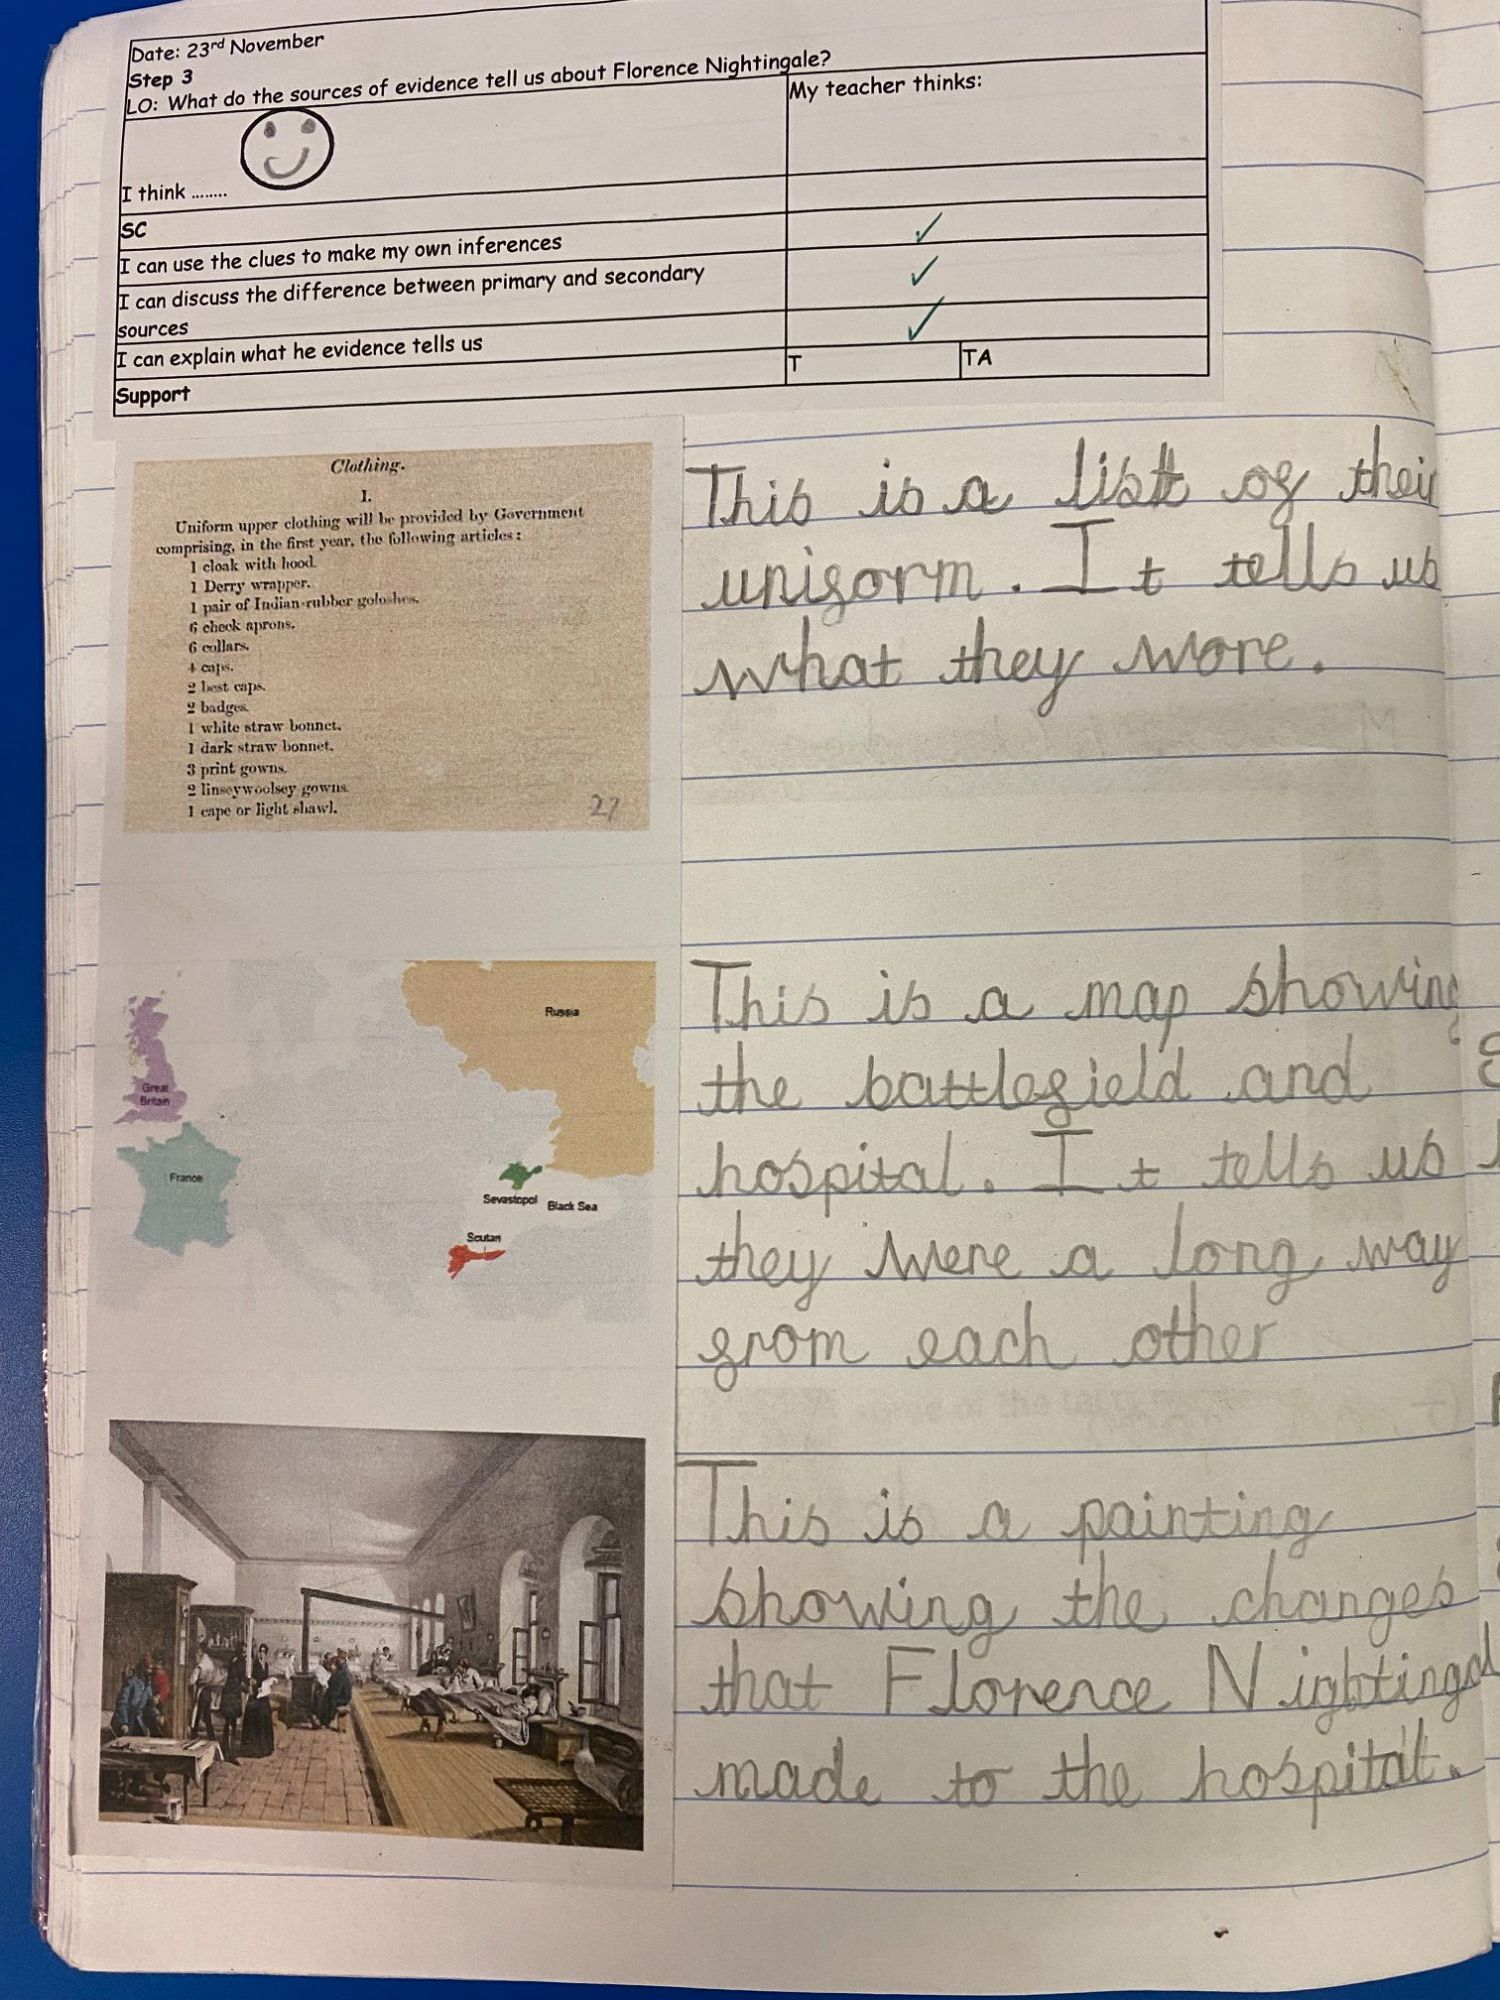 Date: 23rd November
Step 3
LO: What do the sources of evidence tell us about Florence Nightingale?
I think ........
My teacher thinks:
SC
I can use the clues to make my own inferences
I can discuss the difference between primary and secondary
sources
I can explain what he evidence tells us
Support
T
TA
Clothing.
I.
Uniform upper clothing will be provided by Government
comprising, in the first year, the following articles:
1 cloak with hood.
1 Derry wrapper.
1 pair of Indian-rubber goloshes.
6 check aprons.
6 collars.
4 caps.
2 best caps.
2 badges.
1 white straw bonnet.
1 dark straw bonnet.
3 print gowns.
2 linseywoolsey gowns.
1 cape or light shawl.
27
This is a list of their
uniform. It tells us
what they wore.
Great
Britain
France
Russia
Sevastopol
Black Sea
Scutari
This is a map showing
the battlefield and
hospital. It tells us
they were a long way
from each other
This is a painting
showing the changes
that Florence Nightingal
made to the hospital.